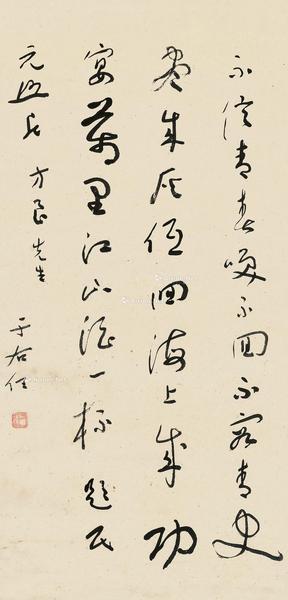 不信青春喚不回不容青史
盡成灰低回海上成功
宴萬里江山酒一杯題民
元照片 方良先生
于右任